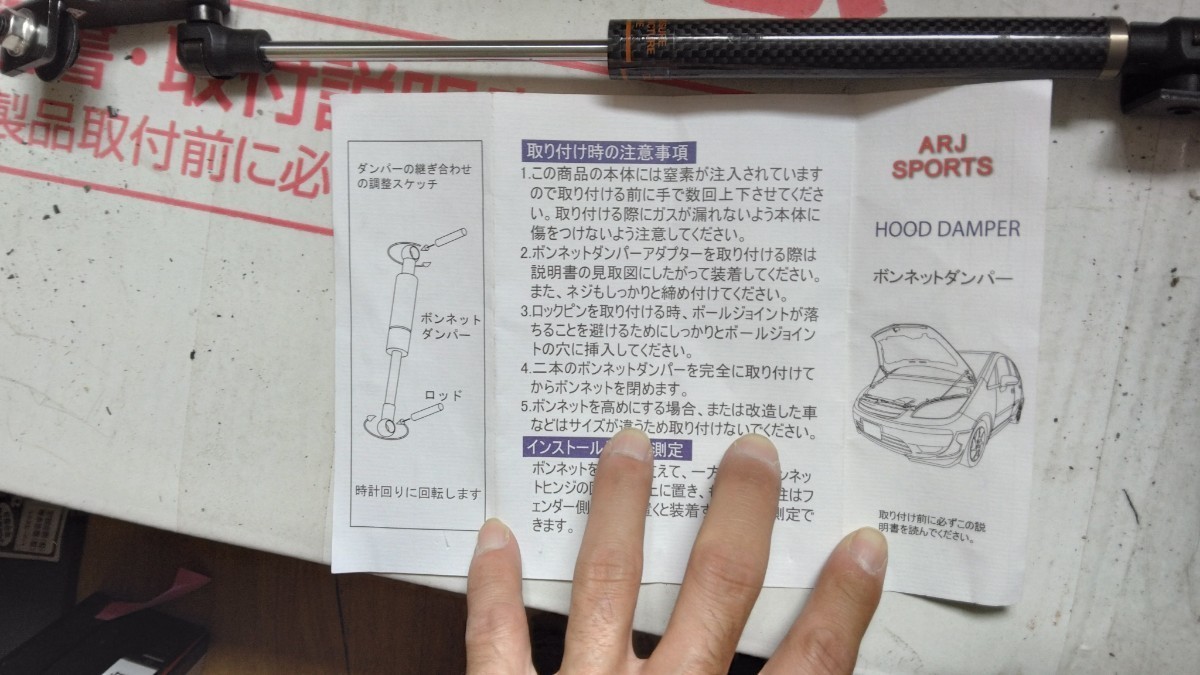 書・取付説明
製品取付前に必
ダンパーの継ぎ合わせ
の調整スケッチ
ボンネット
ダンパー
ロッド
時計回りに回転します
取り付け時の注意事項
1.この商品の本体には窒素が注入されています
ので取り付ける前に手で数回上下させてくださ
い。取り付ける際にガスが漏れないよう本体に
傷をつけないよう注意してください。
2.ボンネットダンパーアダプターを取り付ける際は
説明書の見取図にしたがって装着してください。
また、ネジもしっかりと締め付けてください。
3.ロックピンを取り付る時、ボールジョイントが落
ちることを避けるためにしっかりとボールジョイン
トの穴に挿入してください。
4.二本のボンネットダンパーを完全に取り付けて
からボンネットを閉めます。
5.ボンネットを高めにする場合、または改造した車
などはサイズが違うため取り付けないでください。
インストール 測定
ボンネットを えて、一方 ンネッ
トヒンジの 上に置き、 柱はフ
ェンダー側 置くと装着す 測定で
きます。
ARJ
SPORTS
HOOD DAMPER
ボンネットダンパー
取り付け前に必ずこの説
明書を読んでください。